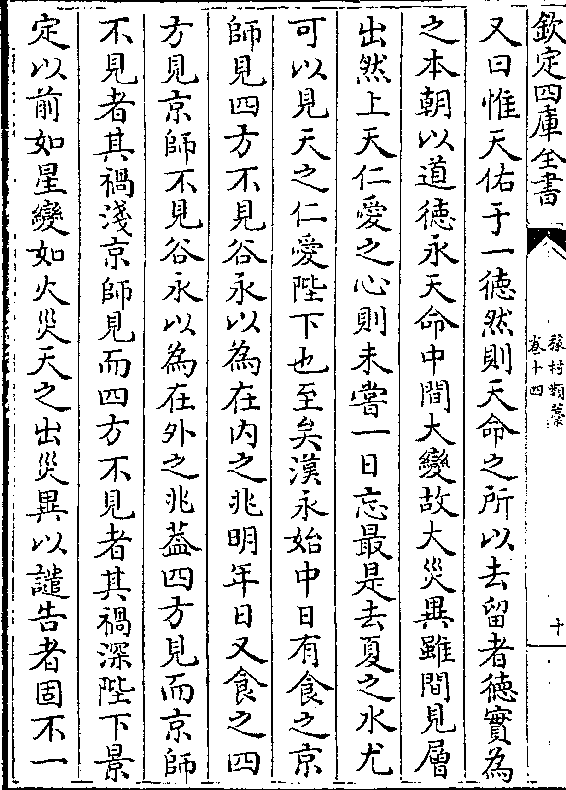 欽定四庫全書
張村類藁
卷十四
十
又曰惟天佑于一徳然則天命之所以去留者徳實為
之本朝以道徳永天命中間大變故大災異雖間見層
出然上天仁愛之心則未嘗一日忘最是去夏之水尤
可以見天之仁愛陛下也至矣漢永始中日有食之京
師見四方不見谷永以為在内之兆明年日又食之四
方見京師不見谷永以為在外之兆葢四方見而京師
不見者其禍淺京師見而四方不見者其禍深陛下景
定以前如星變如火災天之出災異以譴告者固不一